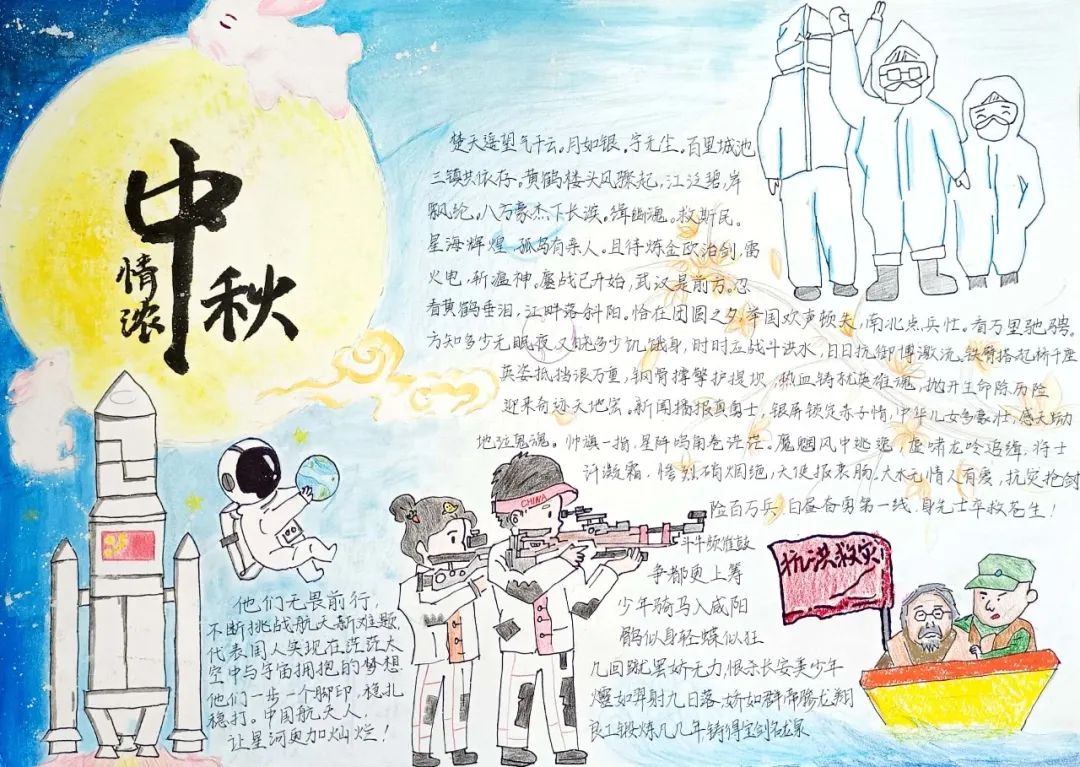 中秋
情浓
楚天遥望气千云。月如银。宇无尘。百里城池
三镇共依存。黄鹤楼头风骤起,江泛碧,岸
飘纶。八万豪杰下长淡。缉幽魂。救斯民。
星海辉煌 孤岛有亲人。且待炼金欧治剑,雷
火电,斩瘟神。鏖战已开始,武汉是前方。忍
看黄鹤垂泪,江畔落斜阳。恰在团圆之夕,举国欢声顿失,南北点兵忙。看万里驰骋。
方知多少无眠夜,又晓多少饥饿身,时时立战斗洪水,日日抗御博激流。铁臂搭起桥千座
英姿抵挡浪万重,钢骨撑擎护提坝,热血铸就英雄魂,抛开生命除历险
迎来奇迹天地宽。新闻播报真勇士,银屏锁定赤子情,中华儿女多豪壮,感天动
地泣鬼魂。帅旗一指,星阵鸣角卷茫茫。魔烟风中逃逸,虚啸龙吟追缉,将士
汗激霜。惨烈硝烟绝,天使报衷肠。大水无情人有爱,抗灾抢
险百万兵,白昼奋勇第一线,身先士卒救苍生!
CHINA
斗牛频催鼓
争都更上筹
少年骑马入咸阳
鹘似身轻蝶似狂
几回跳罢娇无力,恨杀长安美少年
㸌如羿射九日落,娇如群帝骖龙翔
良工锻炼几几年,铸得宝剑名龙泉
他们无畏前行,
不断挑战航天新难题
代表国人实现在茫茫太
空中与宇宙拥抱的梦想
他们一步一个脚印,稳扎
稳打。中国航天人,
让星河更加灿烂!
抗洪救灾